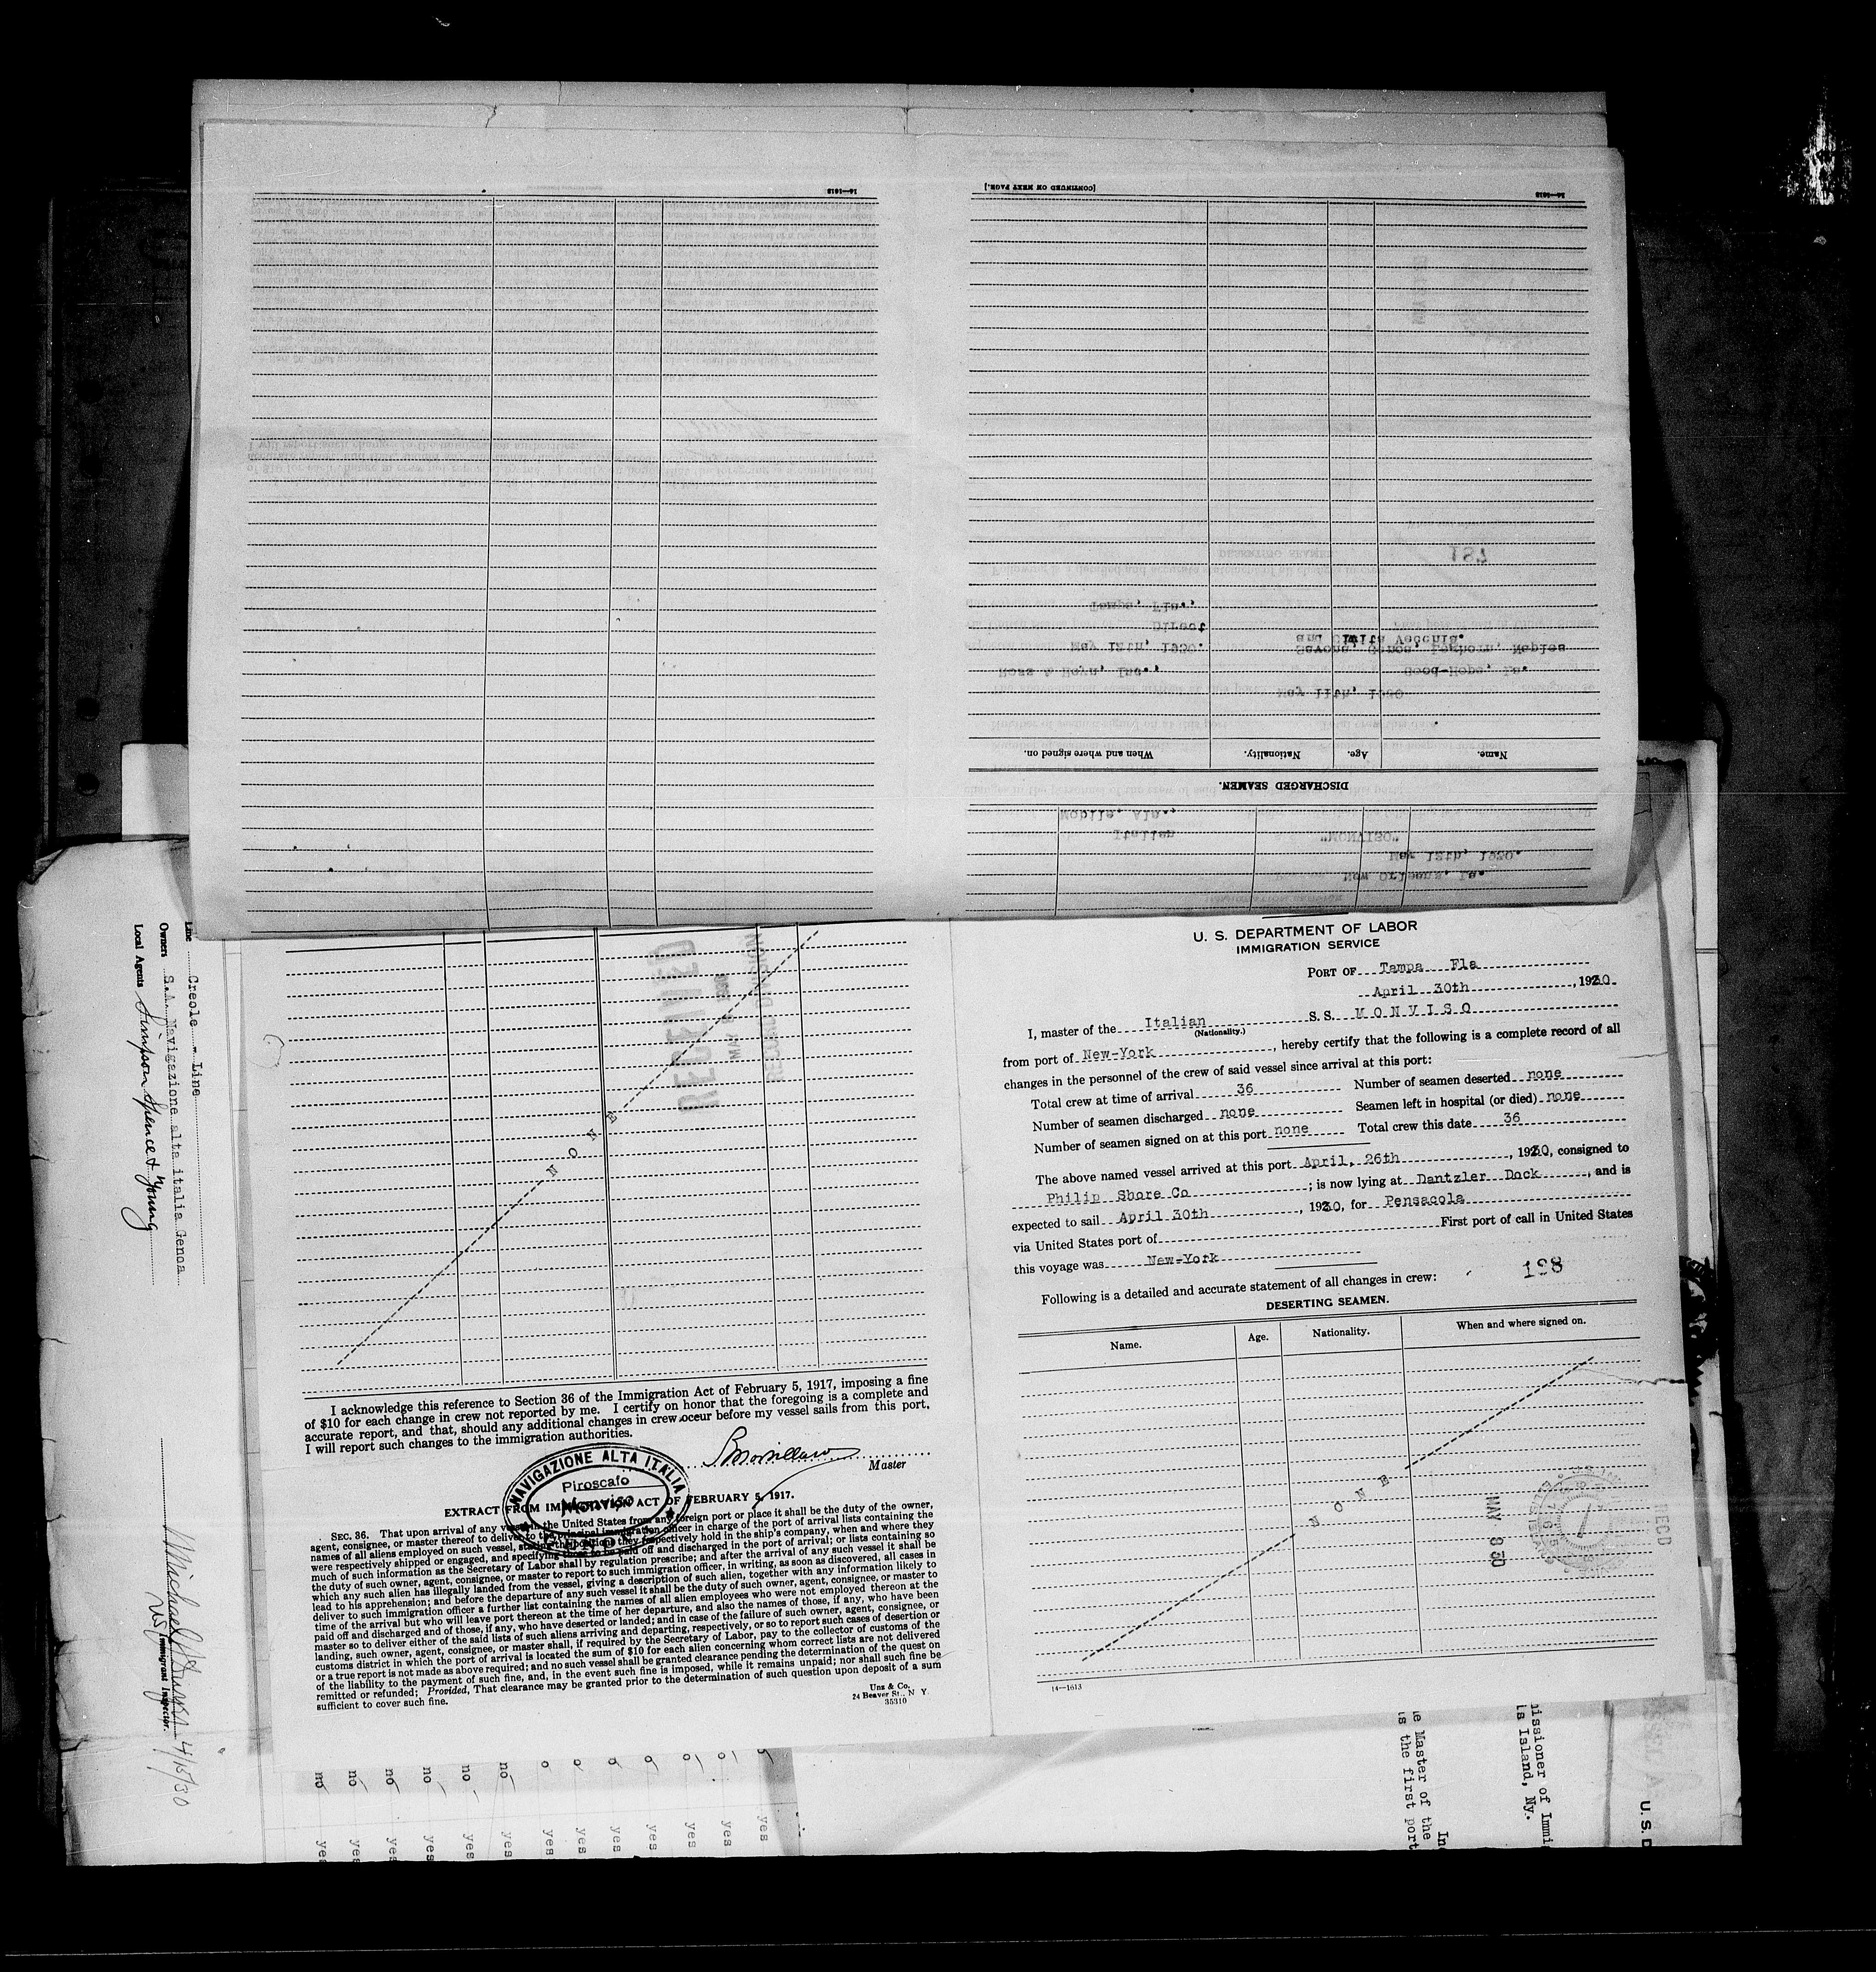 14—1613
[CONTINUED ON NEXT PAGE.]
14—1613
Tampa, Fla.,
Direct
May 12th, 1930.
and Civita Vecchia.
Savona, Genoa, Leghorn, Naples
Ross & Heyn, Inc.,
Good-Hope, La.
May 11th, 1930
When and where signed on.
Nationality.
Age.
Name.
DISCHARGED SEAMEN.
Mobile, Ala.,
Italian
"MONVISO"
May 12th, 1930.
New Orleans, La.
DESERTING SEAMEN
781
Line Creole - Line
Owners S.A. Navigazione alta italia Genoa
Local Agents Simpson Spence & Young
Immigrant Inspector.
4/15/30
NONE
I acknowledge this reference to Section 36 of the Immigration Act of February 5, 1917, imposing a fine
of $10 for each change in crew not reported by me. I certify on honor that the foregoing is a complete and
accurate report, and that, should any additional changes in crew occur before my vessel sails from this port,
I will report such changes to the immigration authorities.
Master
NAVIGAZIONE ALTA ITALIA
Piroscafo
Monviso
EXTRACT FROM IMMIGRATION ACT OF FEBRUARY 5, 1917.
SEC. 36. That upon arrival of any vessel in the United States from any foreign port or place it shall be the duty of the owner,
agent, consignee, or master thereof to deliver to the principal immigration officer in charge of the port of arrival lists containing the
names of all aliens employed on such vessel, stating the positions they respectively hold in the ship's company, when and where they
were respectively shipped or engaged, and specifying those to be paid off and discharged in the port of arrival; or lists containing so
much of such information as the Secretary of Labor shall by regulation prescribe; and after the arrival of any such vessel it shall be
the duty of such owner, agent, consignee, or master to report to such immigration officer, in writing, as soon as discovered, all cases in
which any such alien has illegally landed from the vessel, giving a description of such alien, together with any information likely to
lead to his apprehension; and before the departure of any such vessel it shall be the duty of such owner, agent, consignee, or master to
deliver to such immigration officer a further list containing the names of all alien employees who were not employed thereon at the
time of the arrival but who will leave port thereon at the time of her departure, and also the names of those, if any, who have been
paid off and discharged and of those, if any, who have deserted or landed; and in case of the failure of such owner, agent, consignee, or
master so to deliver either of the said lists of such aliens arriving and departing, respectively, or so to report such cases of desertion or
landing, such owner, agent, consignee, or master shall, if required by the Secretary of Labor, pay to the collector of customs of the
customs district in which the port of arrival is located the sum of $10 for each alien concerning whom correct lists are not delivered
or a true report is not made as above required; and no such vessel shall be granted clearance pending the determination of the quest on
of the liability to the payment of such fine, and, in the event such fine is imposed, while it remains unpaid; nor shall such fine be
remitted or refunded; Provided, That clearance may be granted prior to the determination of such question upon deposit of a sum
sufficient to cover such fine.
Unz & Co.
24 Beaver St., N Y.
35310
U. S. DEPARTMENT OF LABOR
IMMIGRATION SERVICE
PORT OF Tampa Fla
April 30th, 1930.
I, master of the Italian S. S. MONVISO
(Nationality.)
from port of New-York, hereby certify that the following is a complete record of all
changes in the personnel of the crew of said vessel since arrival at this port:
Total crew at time of arrival 36 Number of seamen deserted none
Number of seamen discharged none Seamen left in hospital (or died) none
Number of seamen signed on at this port none Total crew this date 36
The above named vessel arrived at this port April, 26th, 1930, consigned to
Philip Shore Co; is now lying at Dantzler Dock, and is
expected to sail April 30th, 1930, for Pensacola
via United States port of First port of call in United States
this voyage was New-York
198
Following is a detailed and accurate statement of all changes in crew:
DESERTING SEAMEN.
Name. Age. Nationality. When and where signed on.
NONE
MAY 8 30
REC'D
14—1613
no no no no no no o o o o
yes yes yes yes yes yes yes yes yes yes yes yes yes
In
e Master of the
s the first port
missioner of Immi
is Island, Ny.
U. S. D